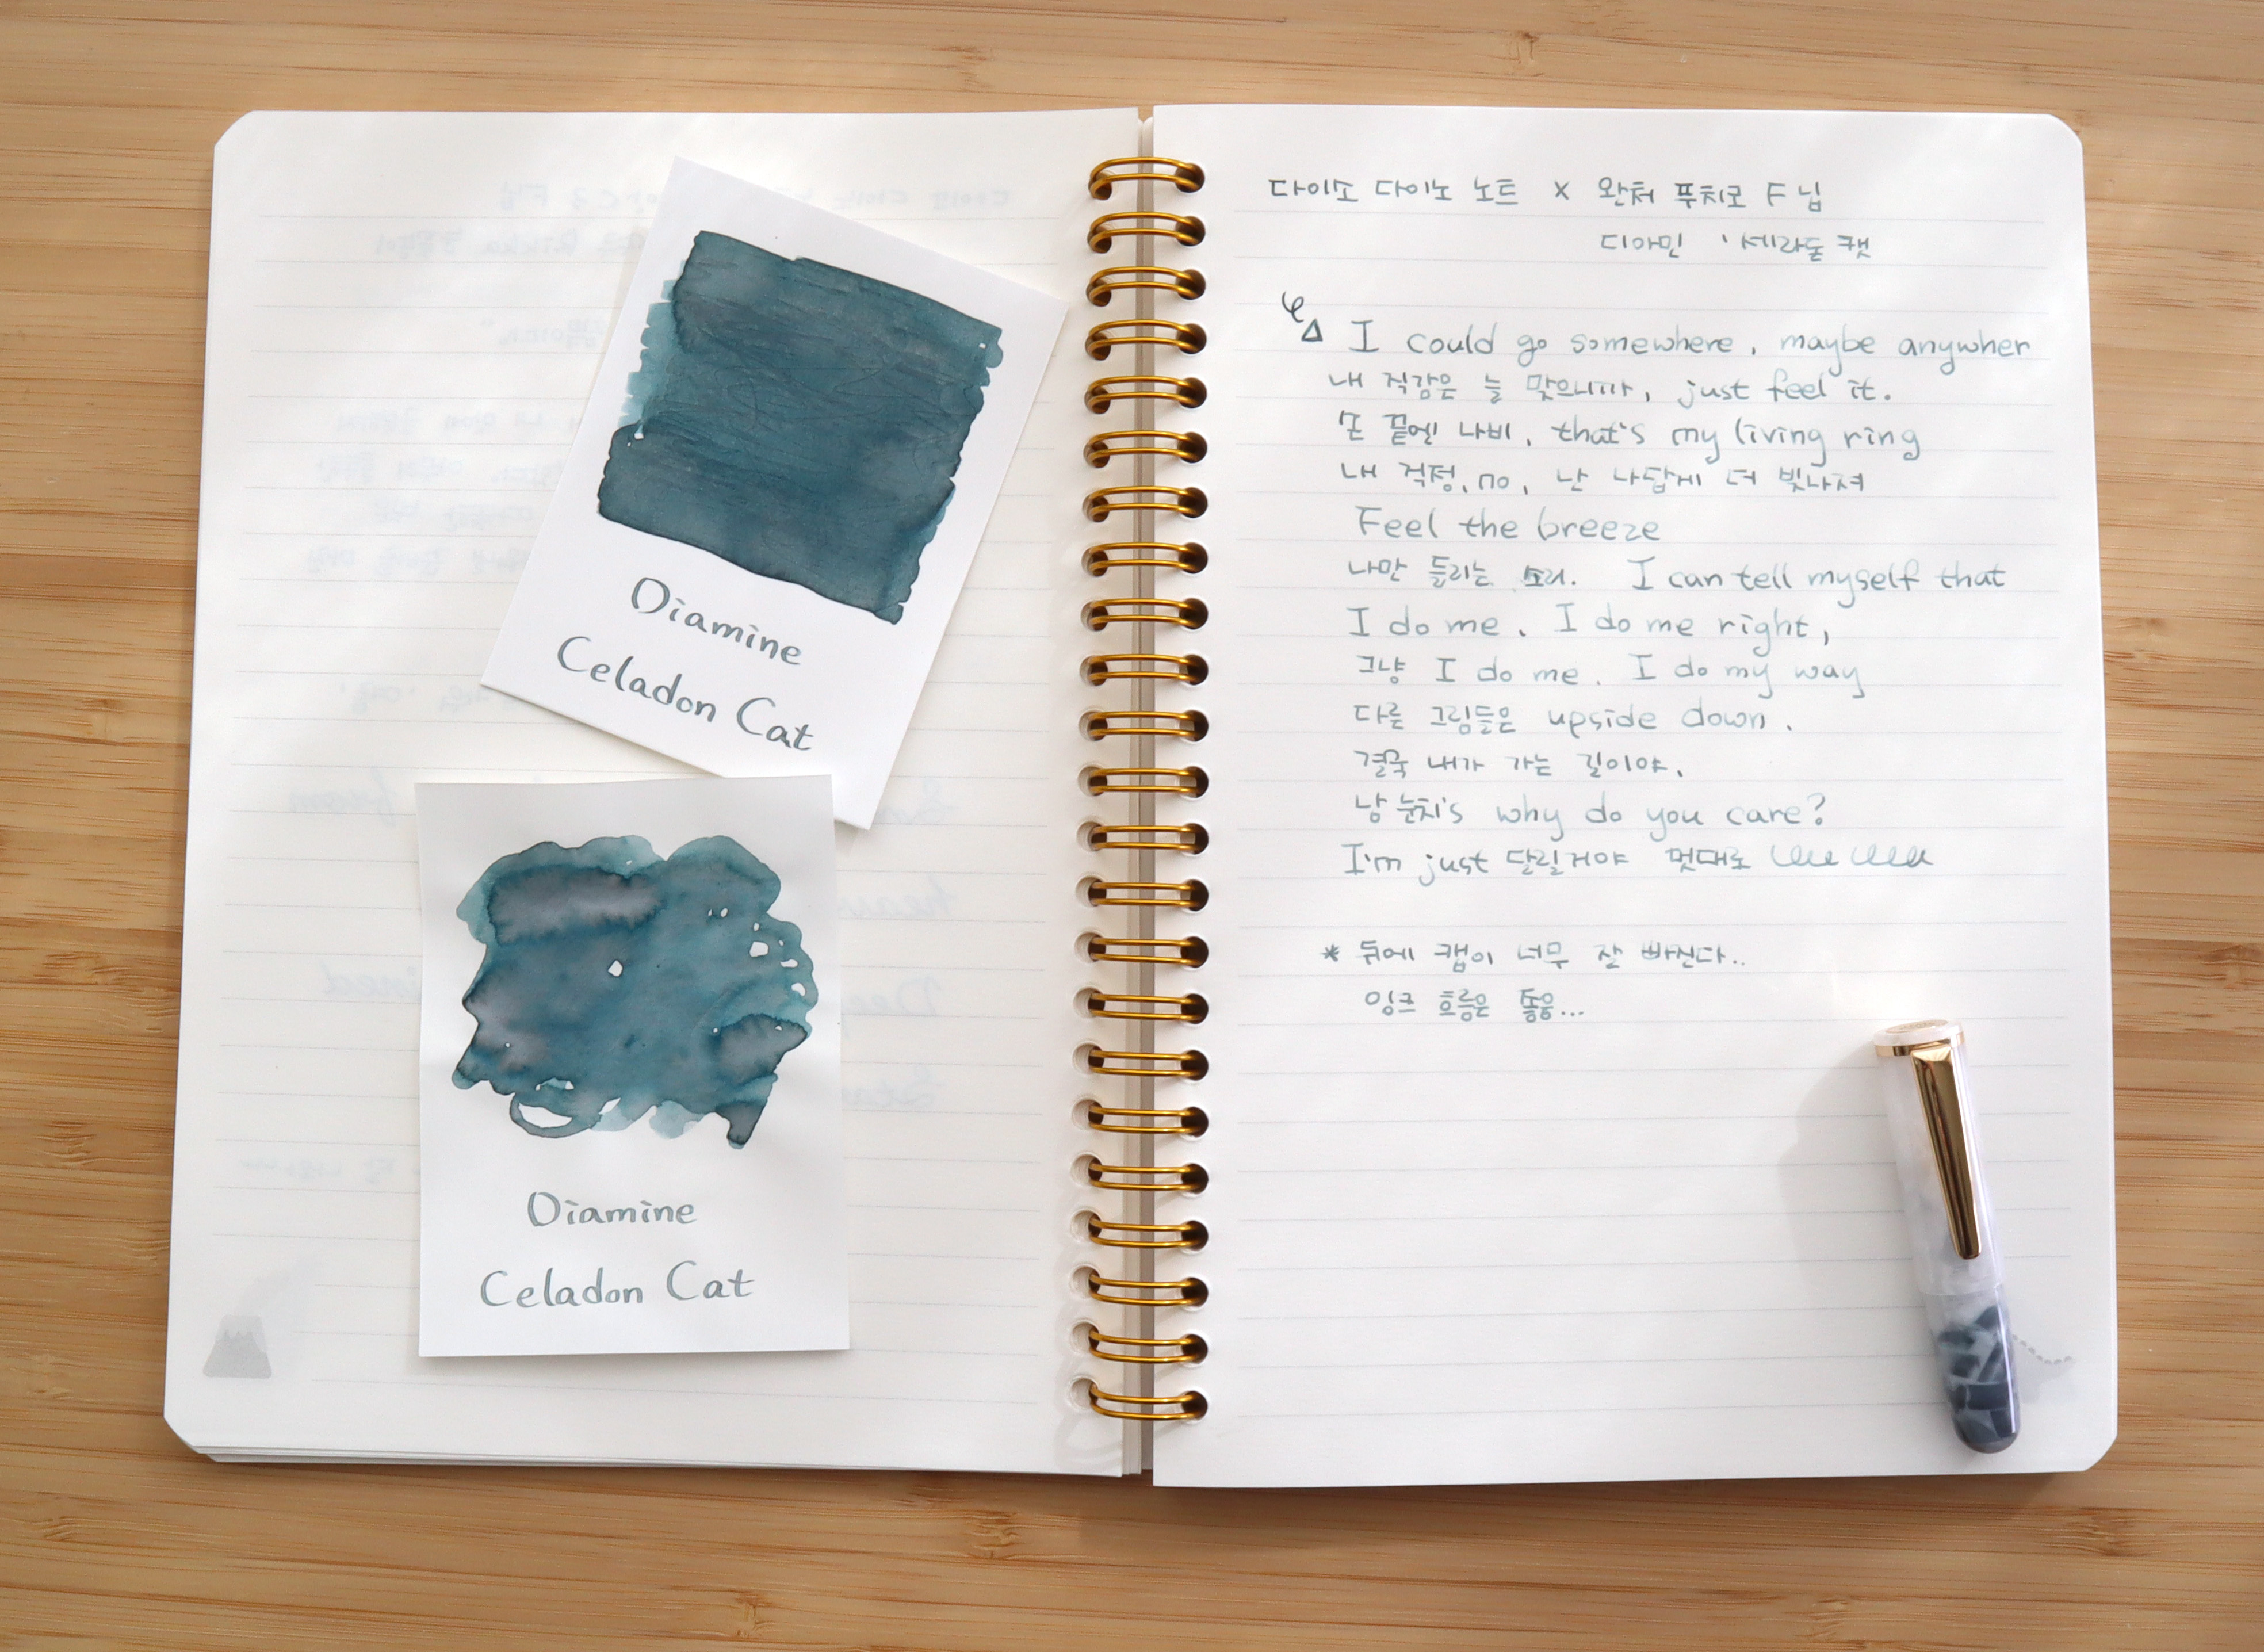 Diamine
Celadon Cat
Diamine
Celadon Cat
다이소 다이노 노트 x 완처 푸치코 F닙
디아민 ' 세라돈 캣
I could go somewhere, maybe anywher
내 직감은 늘 맞으니까, just feel it.
손 끝엔 나비, that's my living ring
내 걱정, no, 난 나답게 더 빛나져
Feel the breeze
나만 들리는 소리. I can tell myself that
I do me. I do me right,
그냥 I do me. I do my way
다른 그림들은 upside down.
결국 내가 가는 길이야.
남 눈치's why do you care?
I'm just 달릴거야 멋대로
* 뒤에 캡이 너무 잘 빠진다..
잉크 흐름은 좋음...